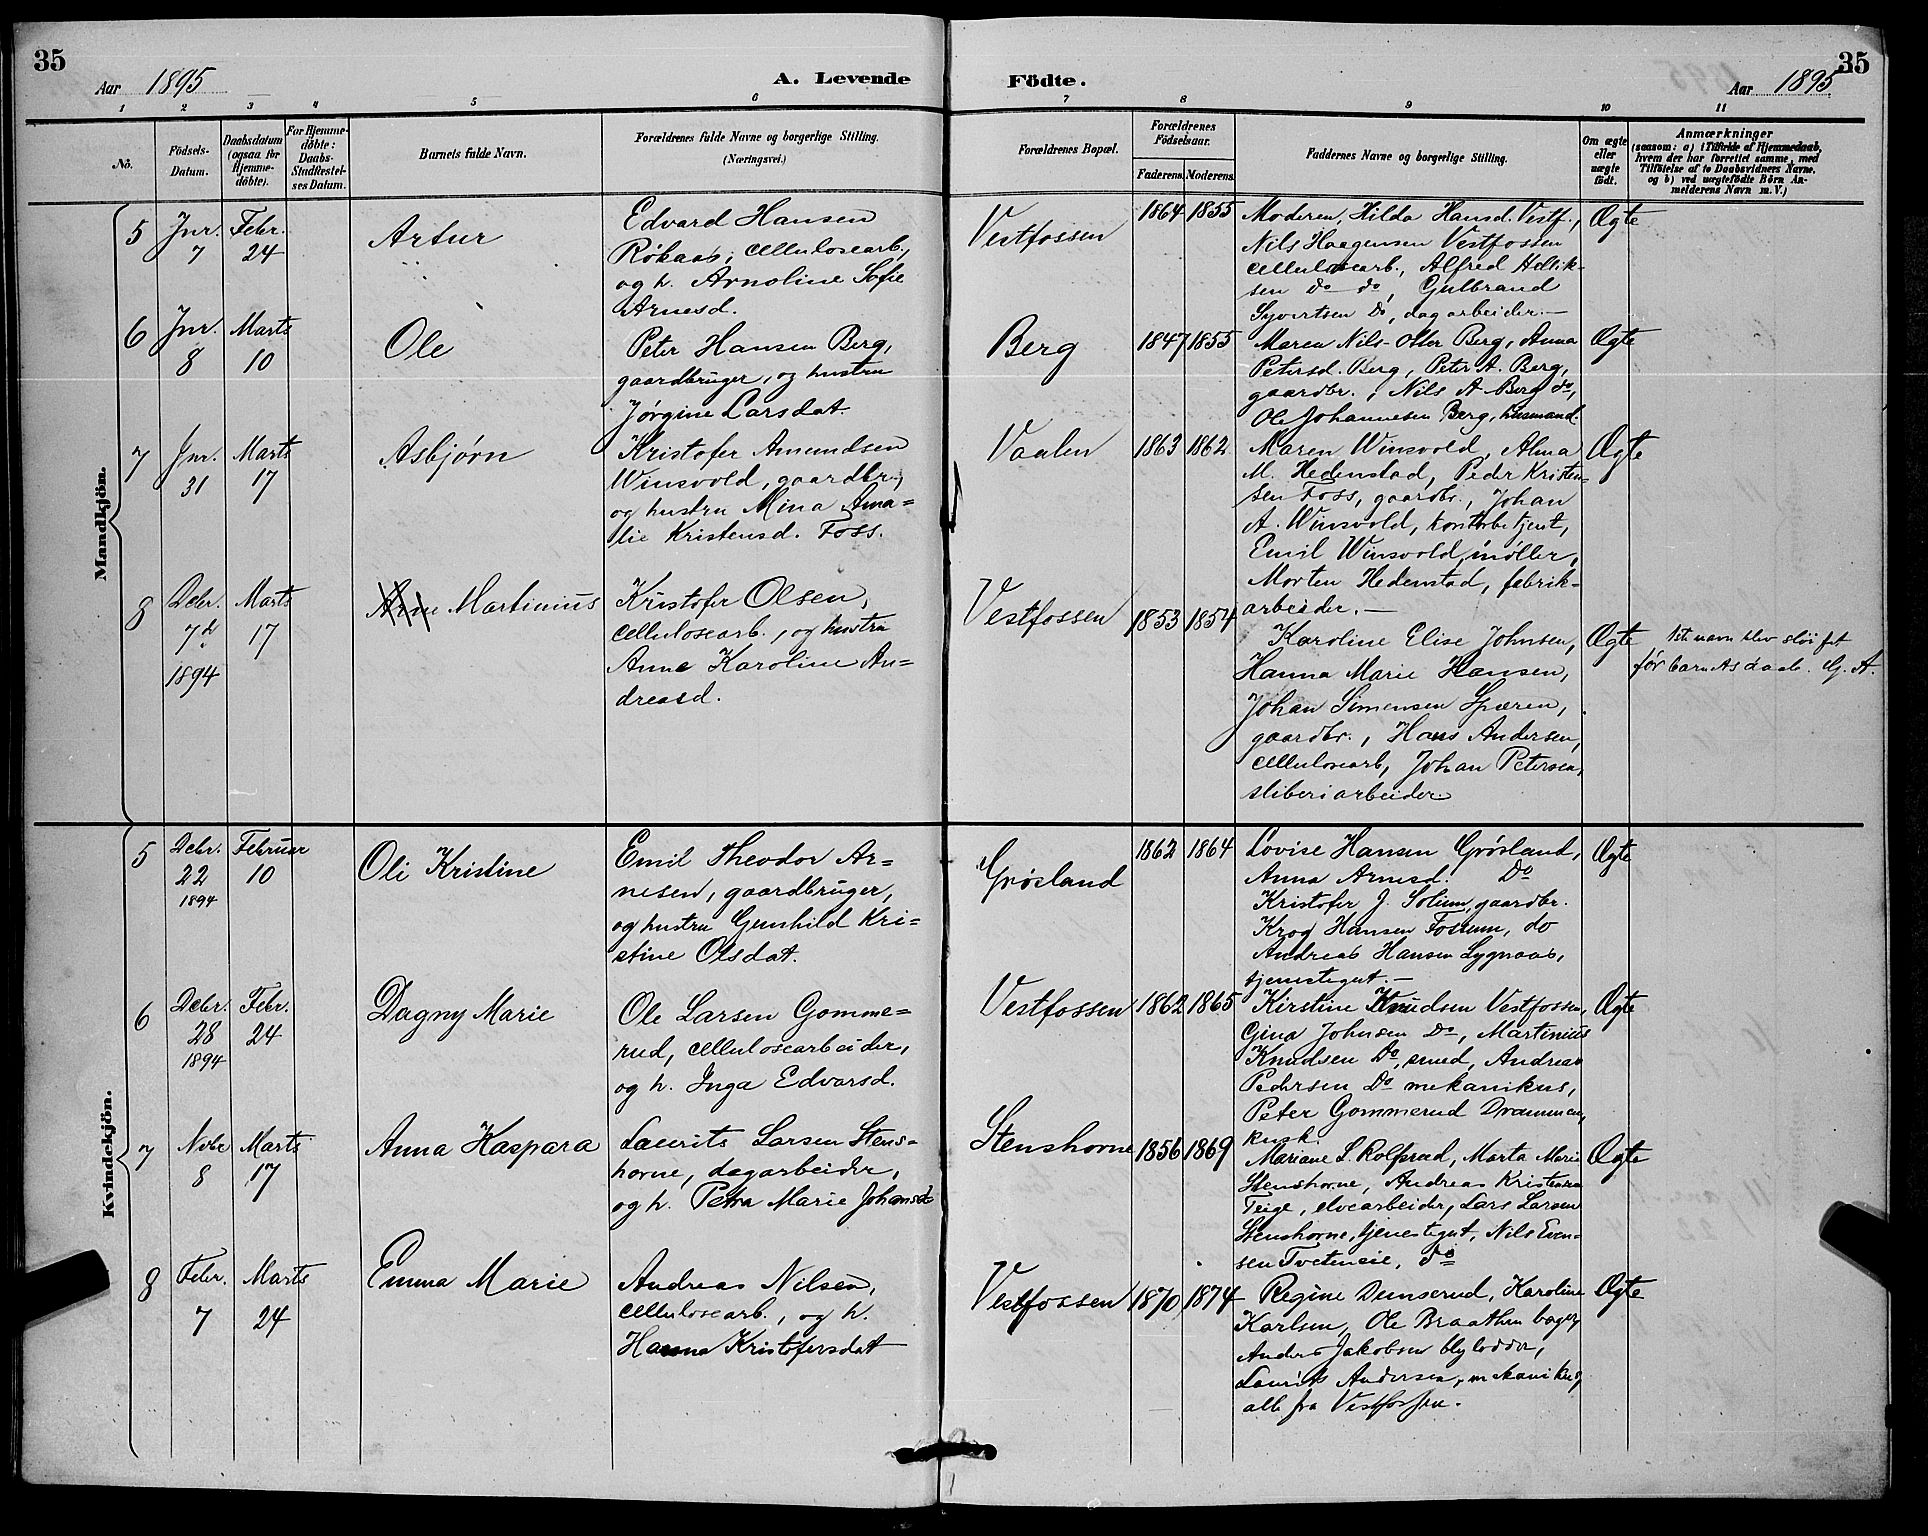 35
35
Aar 1895
A. Levende
Födte.
Aar 1895
1 2 3 4 5 6 7 8 9 10 11
Nö.
Födsels-
Datum.
Daabsdatum
(ogsaa for
Hjemme-
döbte).
For Hjemme-
döbte:
Daabs-
Stadfestel-
ses Datum.
Barnets fulde Navn.
Forældrenes fulde Navne og borgerlige Stilling.
(Næringsvei.)
Forældrenes Bopæl.
Forældrenes
Födselsaar.
Faderens. Moderens.
Faddernes Navne og borgerlige Stilling.
Om ægte
eller
uægte
födt.
Anmærkninger
(saasom: a) i Tilfælde af Hjemmedaab,
hvem der har forrettet samme, med
Tilföielse af to Daabsvidners Navne,
og b) ved uægtefödte Börn An-
melderens Navn m. V.)
Mandkjön.
5
Jnr.
7
Febr.
24
Artur
Edvard Hansen
Røkaas, cellulosearb.,
og h. Arnoline Sofie
Arnesd.
Vestfossen
1864 1855
Moderen, Hilda Hansd. Vestf.,
Nils Haagensen Vestfossen
cellulosearb., Alfred
sen do do, Gulbrand
Syvertsen Do, dagarbeider.—
Ægte
6
Jnr.
8
Marts
10
Ole
Peter Hansen Berg,
gaardbruger, og hustru
Jørgine Larsdat.
Berg
1847 1855
Maren Nils- Berg, Anna
Petersd. Berg, Peter A. Berg,
gaardbr., Nils A. Berg do,
Ole Johannesen Berg, husmand.
Ægte
7
Jnr.
31
Marts
17
Asbjørn
Kristofer Amundsen
Winsvold, gaardbr.,
og hustru Mina Ama=
lie Kristensd. Foss.
Vaalen
1863 1862
Maren Winsvold, Alma
M. Hedenstad, Peder Kristen-
sen Foss, gaardbr., Johan
A. Winsvold, kontorbetjent,
Emil Winsvold, møller,
Morten Hedenstad, fabrik-
arbeider.—
Ægte
8
Debr.
7d
1894
Marts
17
Arne Martinius
Kristofer Olsen,
cellulosearb., og hustru
Anne Karoline An=
dreasd.
Vestfossen
1853 1854
Karoline Elise Johnsen,
Hanna Marie Hansen,
Johan Simensen Spæren,
gaardbr., Hans Andersen,
cellulosearb., Johan Petersen,
sliberiarbeider.
Ægte
1ste navn blev sløifet
før barnets daab. G. A.
Kvindekjön.
5
Debr.
22
1894
Februar
10
Oli Kristine
Emil Theodor Ar=
nesen, gaardbruger,
og hustru Gunhild Kri=
stine Olsdat.
Grøsland
1862 1864
Lovise Hansen Grøsland,
Anna Arnesd. Do
Kristofer J. Solum, gaardbr.
Krog Hansen Fossum, do
Andreas Hansen Lygnaas,
tjenestegut.—
Ægte
6
Debr.
28
1894
Febr.
24
Dagny Marie
Ole Larsen Gomme=
rud, cellulosearbeider,
og h. Inga Edvarsd.
Vestfossen
1862 1865
Kirstine Knudsen Vestfossen,
Gina Johnsen Do, Martinius
Knudsen Do, smed, Andreas
Pedersen Do mekanikus,
Peter Gommerud Drammen,
kusk.
Ægte
7
Nvbr
8
Marts
17
Anna Kaspara
Laurits Larsen Stens=
horne, dagarbeider,
og h. Petra Marie Johansd.
Stenshorne
1856 1869
Mariane L. Rolfsrud, Marta Marie
Stenshorne, Andreas Kristensen
Teige, elvearbeider, Lars Larsen
Stenshorne, tjenestegut, Nils Even=
sen Tveteneie, do
Ægte
8
Febr.
7
Marts
24
Emma Marie
Andreas Nilsen,
cellulosearb., og h.
Hanna Kristofersdat
Vestfossen
1870 1874
Regine Dunserud, Karoline
Karlsen, Ole Braathen bager,
Anders Jakobsen blylodder,
Laurits Andersen, mekanikus,
alle fra Vestfossen.
Ægte